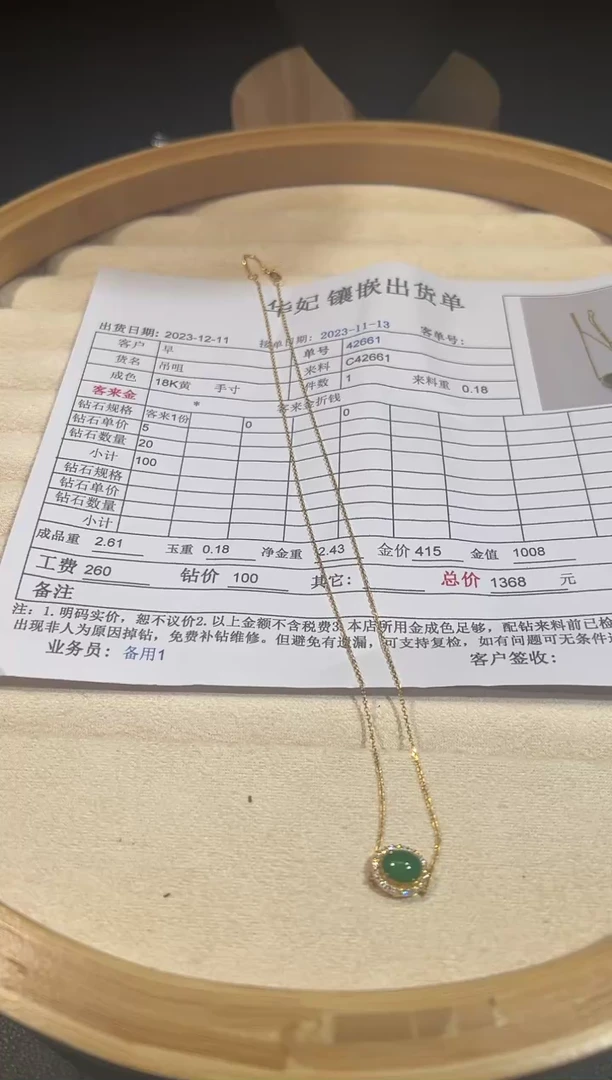 华妃 镶嵌出货单
出货日期: 2023-12-11 接单日期: 2023-11-13 客单号:
客户 早 单号 42661
货名 吊咀 来料 C42661
成色 18K黄 手寸 件数 1 来料重 0.18
客来金 * 客来金折钱
钻石规格 客来1份 0 0
钻石单价 5
钻石数量 20
小计 100
钻石规格
钻石单价
钻石数量
小计
成品重 2.61 玉重 0.18 净金重 2.43 金价 415 金值 1008
工费 260 钻价 100 其它: 总价 1368 元
备注
注: 1. 明码实价, 恕不议价2. 以上金额不含税费3. 本店所用金成色足够, 配钻来料前已检
出现非人为原因掉钻, 免费补钻维修。但避免有遗漏, 可支持复检, 如有问题可无条件
业务员: 备用1 客户签收: